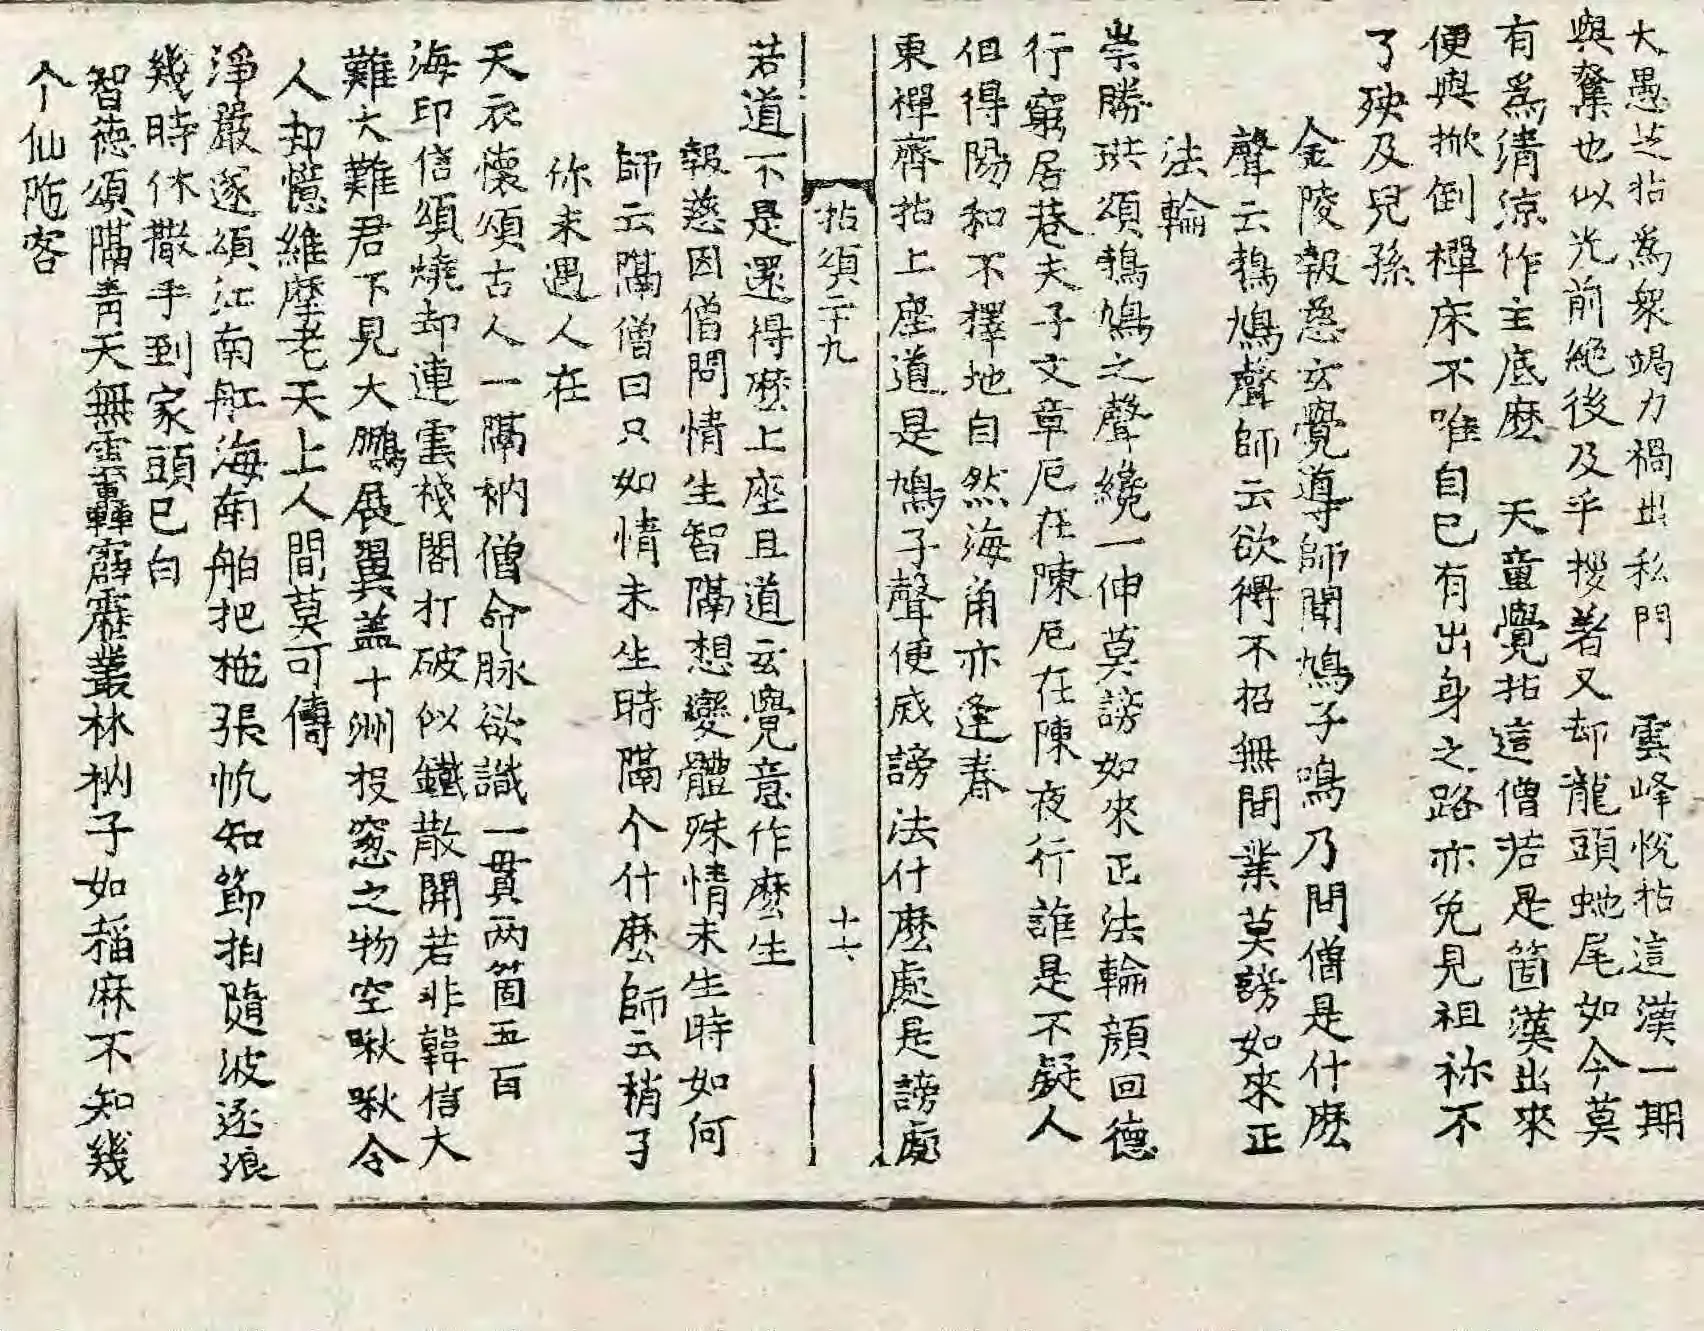 大愚芝拈爲衆竭力禍出私門　雲峰悅拈這漢一期
與奪也似光前絕後及乎拶著又却龍頭虵尾如今莫
有爲清涼作主底麽　天童覺拈這僧若是箇漢出來
便與掀倒禪床不唯自巳有出身之路亦免見祖祢不
了殃及兒孫
金陵報慈玄覺導師聞鳩子鳴乃問僧是什麽
聲云鵓鳩聲師云欲得不招無間業莫謗如來正
法輪
崇勝珙頌鵓鳩之聲纔一伸莫謗如來正法輪顔回德
行窮居巷夫子文章厄在陳厄在陳夜行誰是不疑人
但得陽和不擇地自然海角亦逢春
東禪齊拈上座道是鳩子聲便成謗法什麽處是謗處
拈頌二十九
十六
若道不是還得麽上座且道玄覺意作麽生
報慈因僧問情生智隔想變體殊情未生時如何
師云隔僧曰只如情未生時隔个什麽師云稍子
你未遇人在
天衣懷頌古人一隔衲僧命脉欲識一貫两箇五百
海印信頌燒却連雲棧閣打破似鐵散關若非韓信大
難大難君不見大鵬展翼盖十洲投窓之物空啾啾令
人却憶維摩老天上人間莫可儔
淨嚴遂頌江南舡海南舶把拖張帆知節拍隨波逐浪
幾時休撒手到家頭巳白
智德頌隔靑天無雲轟霹靂叢林衲子如稻麻不知幾
个仙陁客